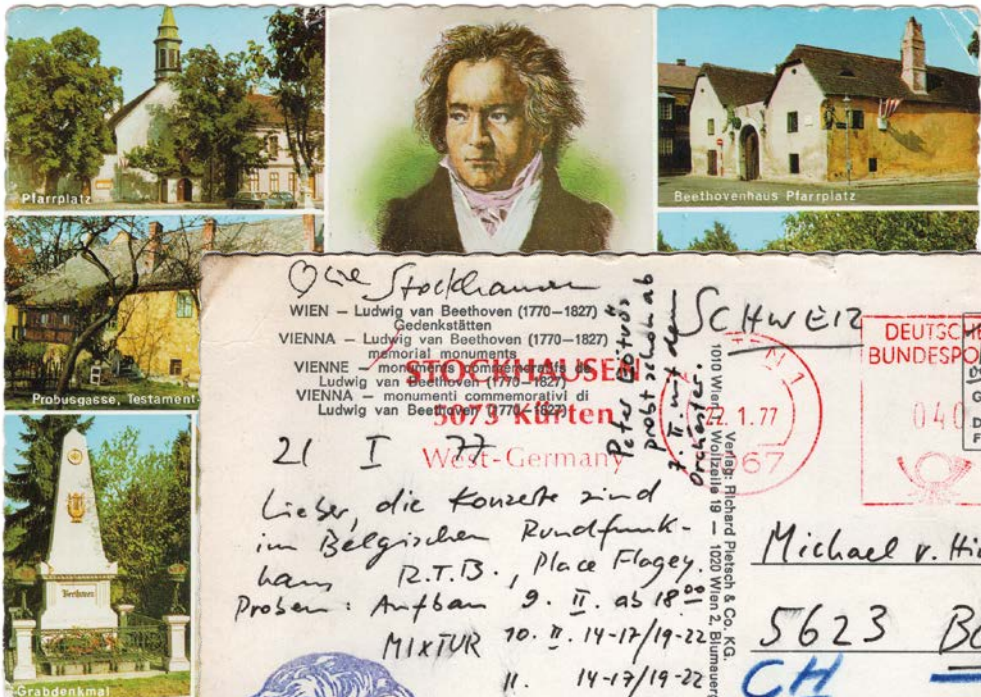 Pfarrplatz
Beethovenhaus Pfarrplatz
Probusgasse, Testament-
Beethoven
Grabdenkmal
Stockhausen
WIEN — Ludwig van Beethoven (1770—1827)
Gedenkstätten
VIENNA — Ludwig van Beethoven (1770—1827)
memorial monuments
VIENNE — monuments commémoratifs de
Ludwig van Beethoven (1770—1827)
VIENNA — monumenti commemorativi di
Ludwig van Beethoven (1770—1827)
STOCKHAUSEN
5073 Kürten
West-Germany
21 I 77
Lieber, die Konzerte sind
im Belgischen Rundfunk-
haus R.T.B., Place Flagey.
Proben: Aufbau 9. II. ab 18 00
MIXTUR 10. II. 14-17/19-22
11. 14-17/19-22
Peter Eötvös
probt schon ab
7. II. mit dem
Orchester.
Verlag: Richard Pietsch & Co. KG.
1010 Wien, Wollzeile 19 — 1020 Wien 2, Blumauer
SCHWEIZ
22.1.77
067
DEUTSCHE
BUNDESPO
040
Michael v.
5623
CH